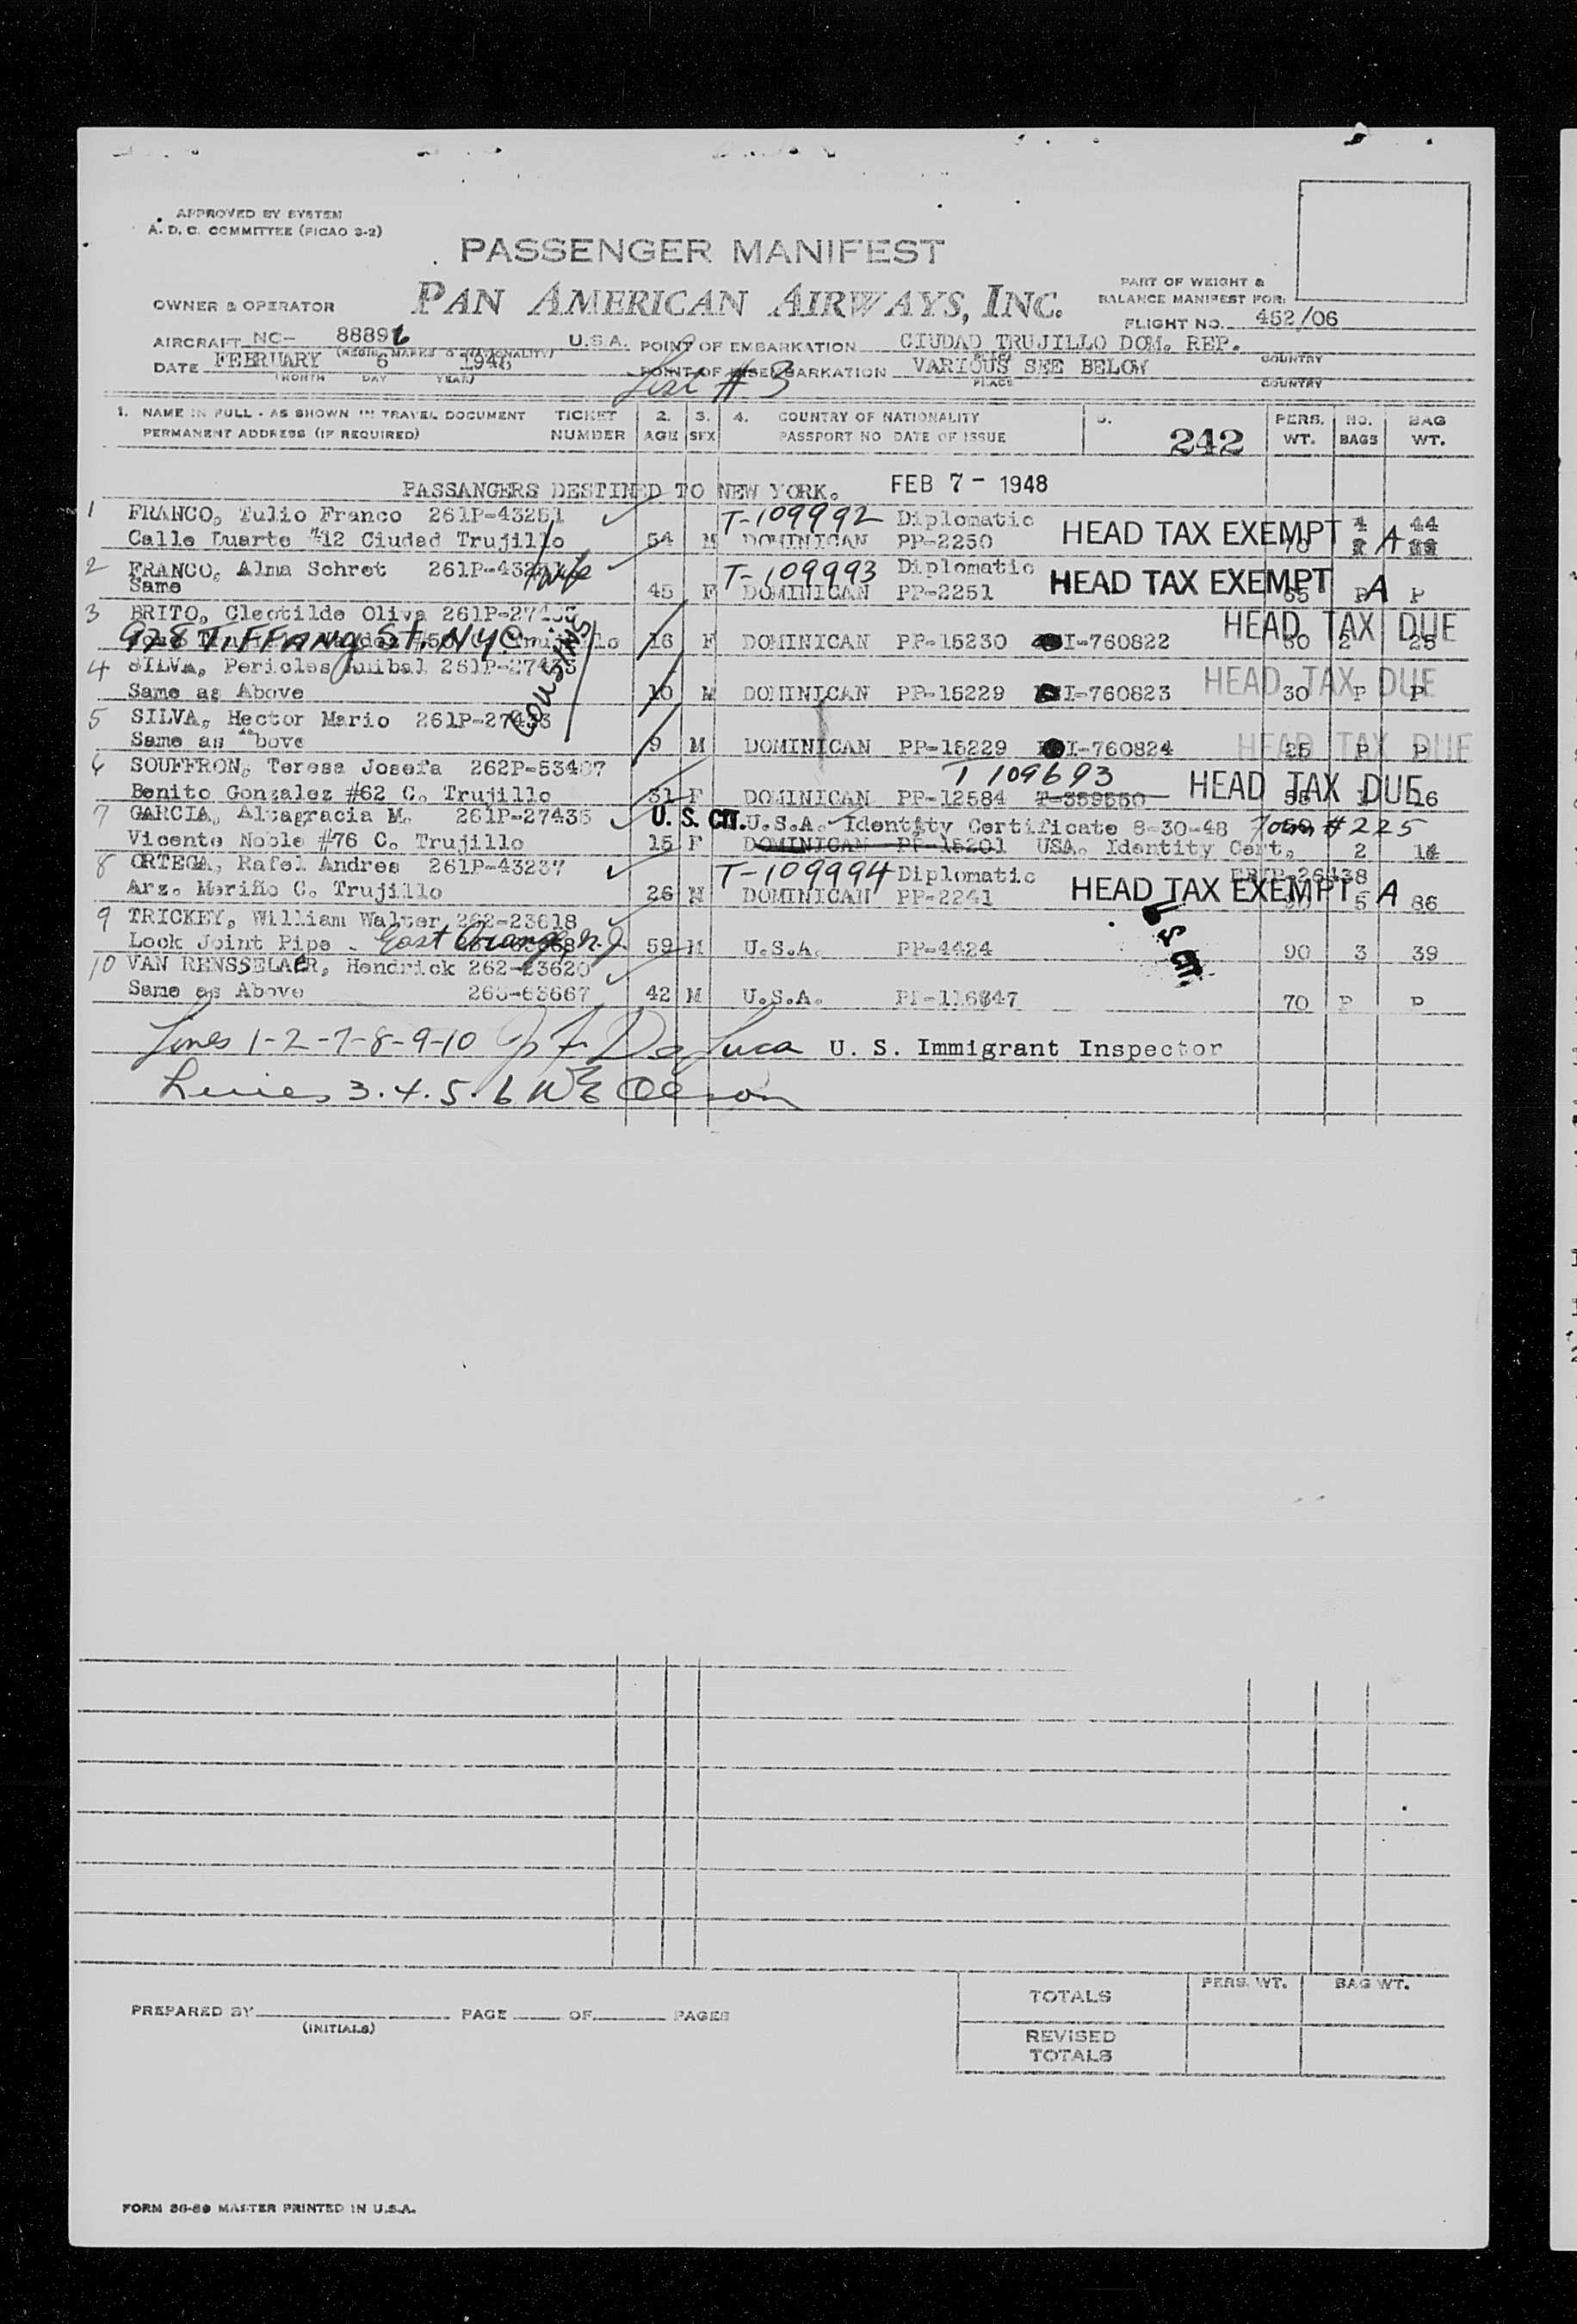 APPROVED BY SYSTEM
A. D. C. COMMITTEE (PICAO 3-2)
PASSENGER MANIFEST
PAN AMERICAN AIRWAYS, INC.
OWNER & OPERATOR
PART OF WEIGHT &
BALANCE MANIFEST FOR:
FLIGHT NO. 452/06
AIRCRAFT NC- 88896 U.S.A. POINT OF EMBARKATION CIUDAD TRUJILLO DOM. REP.
(REGIS. MARKS & NATIONALITY) PLACE COUNTRY
DATE FEBRUARY 6 1948 POINT OF DISEMBARKATION VARIOUS SEE BELOW
(MONTH DAY YEAR) PLACE COUNTRY
List # 3
1. NAME IN FULL - AS SHOWN IN TRAVEL DOCUMENT TICKET 2. 3. 4. COUNTRY OF NATIONALITY 5. PERS. NO. BAG
PERMANENT ADDRESS (IF REQUIRED) NUMBER AGE SEX PASSPORT NO DATE OF ISSUE 242 WT. BAGS WT.
PASSANGERS DESTINED TO NEW YORK. FEB 7 - 1948
1 FRANCO, Tulio Franco 261P-43251 T-109992 Diplomatic HEAD TAX EXEMPT 4 A 44
Calle Duarte #12 Ciudad Trujillo 54 M DOMINICAN PP-2250 70
2 FRANCO, Alma Schret wife T-109993 Diplomatic HEAD TAX EXEMPT A
Same 45 F DOMINICAN PP-2251 55 P P
3 BRITO, Cleotilde Oliva HEAD TAX DUE
978 TIFFANY St. NYC 16 F DOMINICAN PP-15230 I-760822 50 2 25
4 SILVA, Pericles Anibal COUSINS HEAD TAX DUE
Same as Above 10 M DOMINICAN PP-15229 I-760823 30 P P
5 SILVA, Hector Mario 261P-27433
Same as above 9 M DOMINICAN PP-15229 I-760824 HEAD TAX DUE 25 P P
6 SOUFFRON, Teresa Josefa 262P-53407 T 109693 HEAD TAX DUE
Benito Gonzalez #62 C. Trujillo 31 F DOMINICAN PP-12584 T-359550 55 1 16
7 GARCIA, Altagracia M. 261P-27435 U. S. CIT. U.S.A. Identity Certificate 8-30-48 Form #225
Vicente Noble #76 C. Trujillo 15 F DOMINICAN PP-15201 USA. Identity Cert. 2 14
8 ORTEGA, Rafel Andres 261P-43237 T-109994 Diplomatic
Arz. Meriño C. Trujillo 26 M DOMINICAN PP-2241 HEAD TAX EXEMPT 5 A 86
9 TRICKEY, William Walter 262-23618
Lock Joint Pipe - East Orange, N.J. 59 M U.S.A. PP-4424 U S CIT 90 3 39
10 VAN RENSSELAER, Hendrick 262-23620
Same as Above 42 M U.S.A. 70 P P
Lines 1-2-7-8-9-10 J. F. DeLuca U. S. Immigrant Inspector
Lines 3.4.5.6 WE Olson
PREPARED BY PAGE OF PAGES
(INITIALS)
TOTALS PERS. WT. BAG WT.
REVISED
TOTALS
FORM 36-89 MASTER PRINTED IN U.S.A.